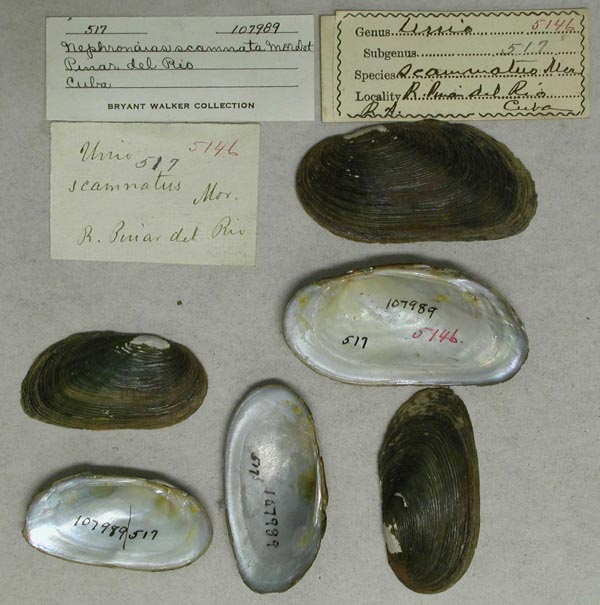 517 107989
Nephronaias scamnata Morelet
Pinar del Rio
Cuba
BRYANT WALKER COLLECTION
Genus Unio 5146
Subgenus 517
Species scamnatus Mor
Locality R. Pinar del Rio
Cuba
Unio 5146
517
scamnatus
Mor.
R. Pinar del Rio
107989
517 5146.
107989/517
517
107989